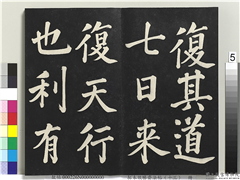 復其道
七日来
復天行
也利有
5